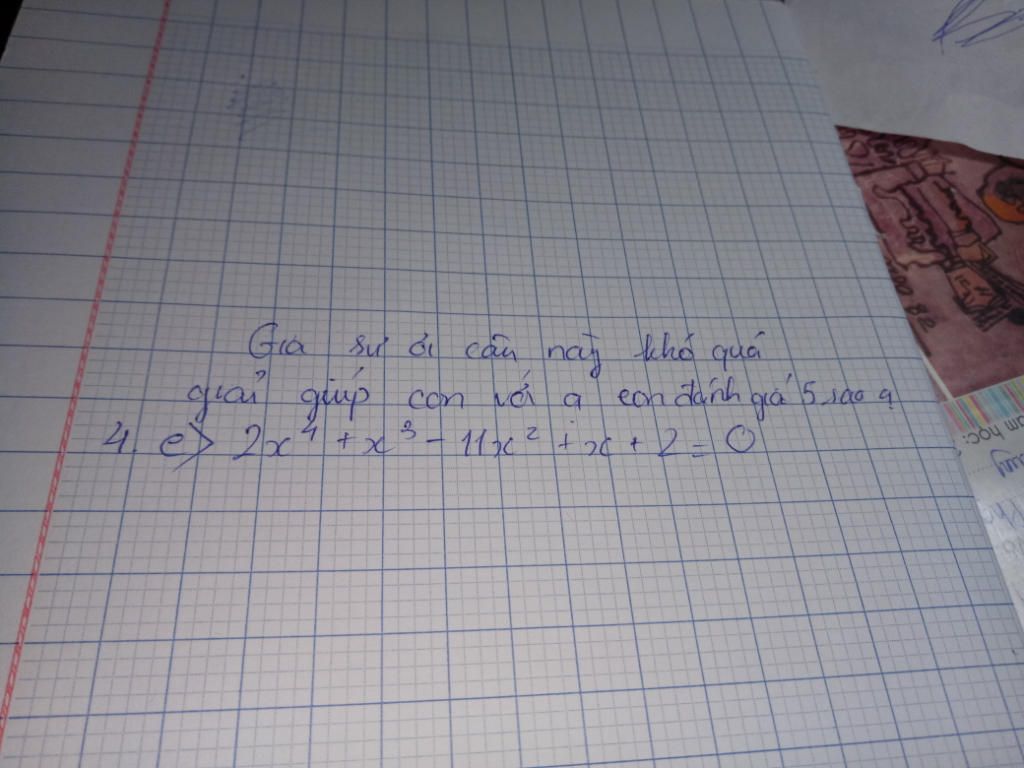 Gia sư ơi câu này khó quá
giải giúp con với ạ con đánh giá 5 sao ạ
4. e) 2x⁴ + x³ - 11x² + x + 2 = 0
om học: